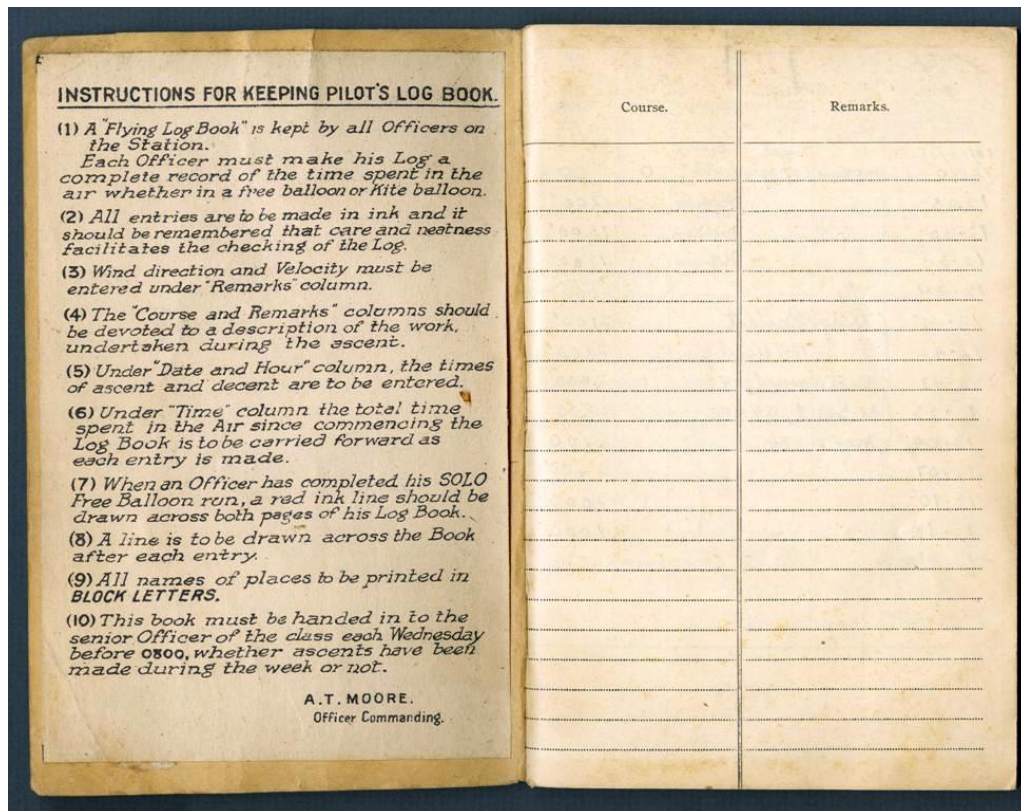 INSTRUCTIONS FOR KEEPING PILOT'S LOG BOOK.
(1) A "Flying Log Book" is kept by all Officers on
the Station.
Each Officer must make his Log a
complete record of the time spent in the
air whether in a free balloon or Kite balloon.
(2) All entries are to be made in ink and it
should be remembered that care and neatness
facilitates the checking of the Log.
(3) Wind direction and Velocity must be
entered under "Remarks" column.
(4) The "Course and Remarks" columns should
be devoted to a description of the work,
undertaken during the ascent.
(5) Under "Date and Hour" column, the times
of ascent and decent are to be entered.
(6) Under "Time" column the total time
spent in the Air since commencing the
Log Book is to be carried forward as
each entry is made.
(7) When an Officer has completed his SOLO
Free Balloon run, a red ink line should be
drawn across both pages of his Log Book.
(8) A line is to be drawn across the Book
after each entry.
(9) All names of places to be printed in
BLOCK LETTERS.
(10) This book must be handed in to the
senior Officer of the class each Wednesday
before 0800, whether ascents have been
made during the week or not.
A.T. MOORE.
Officer Commanding.
Course.
Remarks.